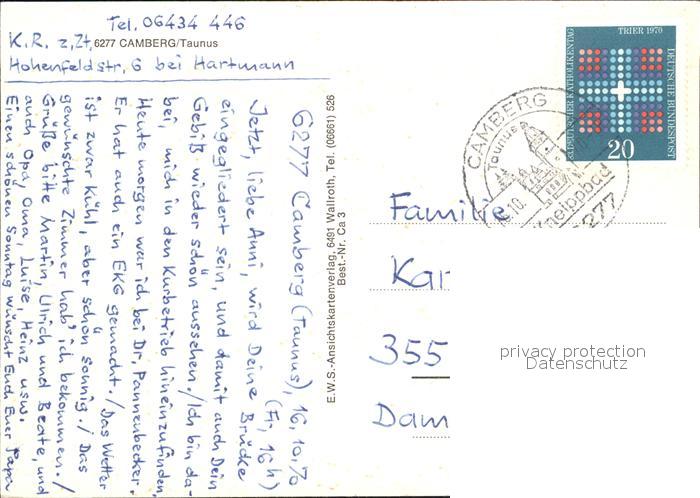 Tel. 06434 446
K.R. z,Zt, 6277 CAMBERG/Taunus
Hohenfeldstr, 6 bei Hartmann
6277 Camberg (Taunus), 16.10.70
(Fr, 16h)
Jetzt, liebe Anni, wird Deine Brücke
eingegliedert sein, und damit auch Dein
Gebiß wieder schön aussehen./Ich bin da-
bei, mich in den Kurbetrieb hineinzufinden,
Heute morgen war ich bei Dr. Pannenbecker.
Er hat auch ein EKG gemacht./Das Wetter
ist zwar kühl, aber schön sonnig./Das
gewünschte Zimmer hab' ich bekommen./
Grüße bitte Martin, Ulrich und Beate, und
auch Opa, Oma, Luise, Heinz usw.
Einen schönen Sonntag wünscht Euch Euer Papa
E.W.S.-Ansichtskartenverlag, 6401 Wallroth, Tel. (06661) 526
Best.-Nr. Ca 3
TRIER 1970
DEUTSCHER KATHOLIKENTAG
DEUTSCHE BUNDESPOST
20
CAMBERG
Taunus
10.
Kneippbad
6277
Familie
Kar
355
Dam
privacy protection
Datenschutz